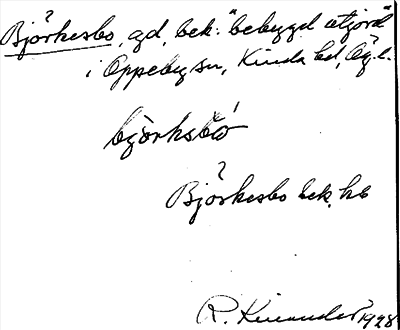 Björkesbo, gd, bek. "bebygd utjord"
i Oppeby sn, Kinda hd, Ög. l.
björksbo
Björkesbo bek. hb
R. Kinander 1928